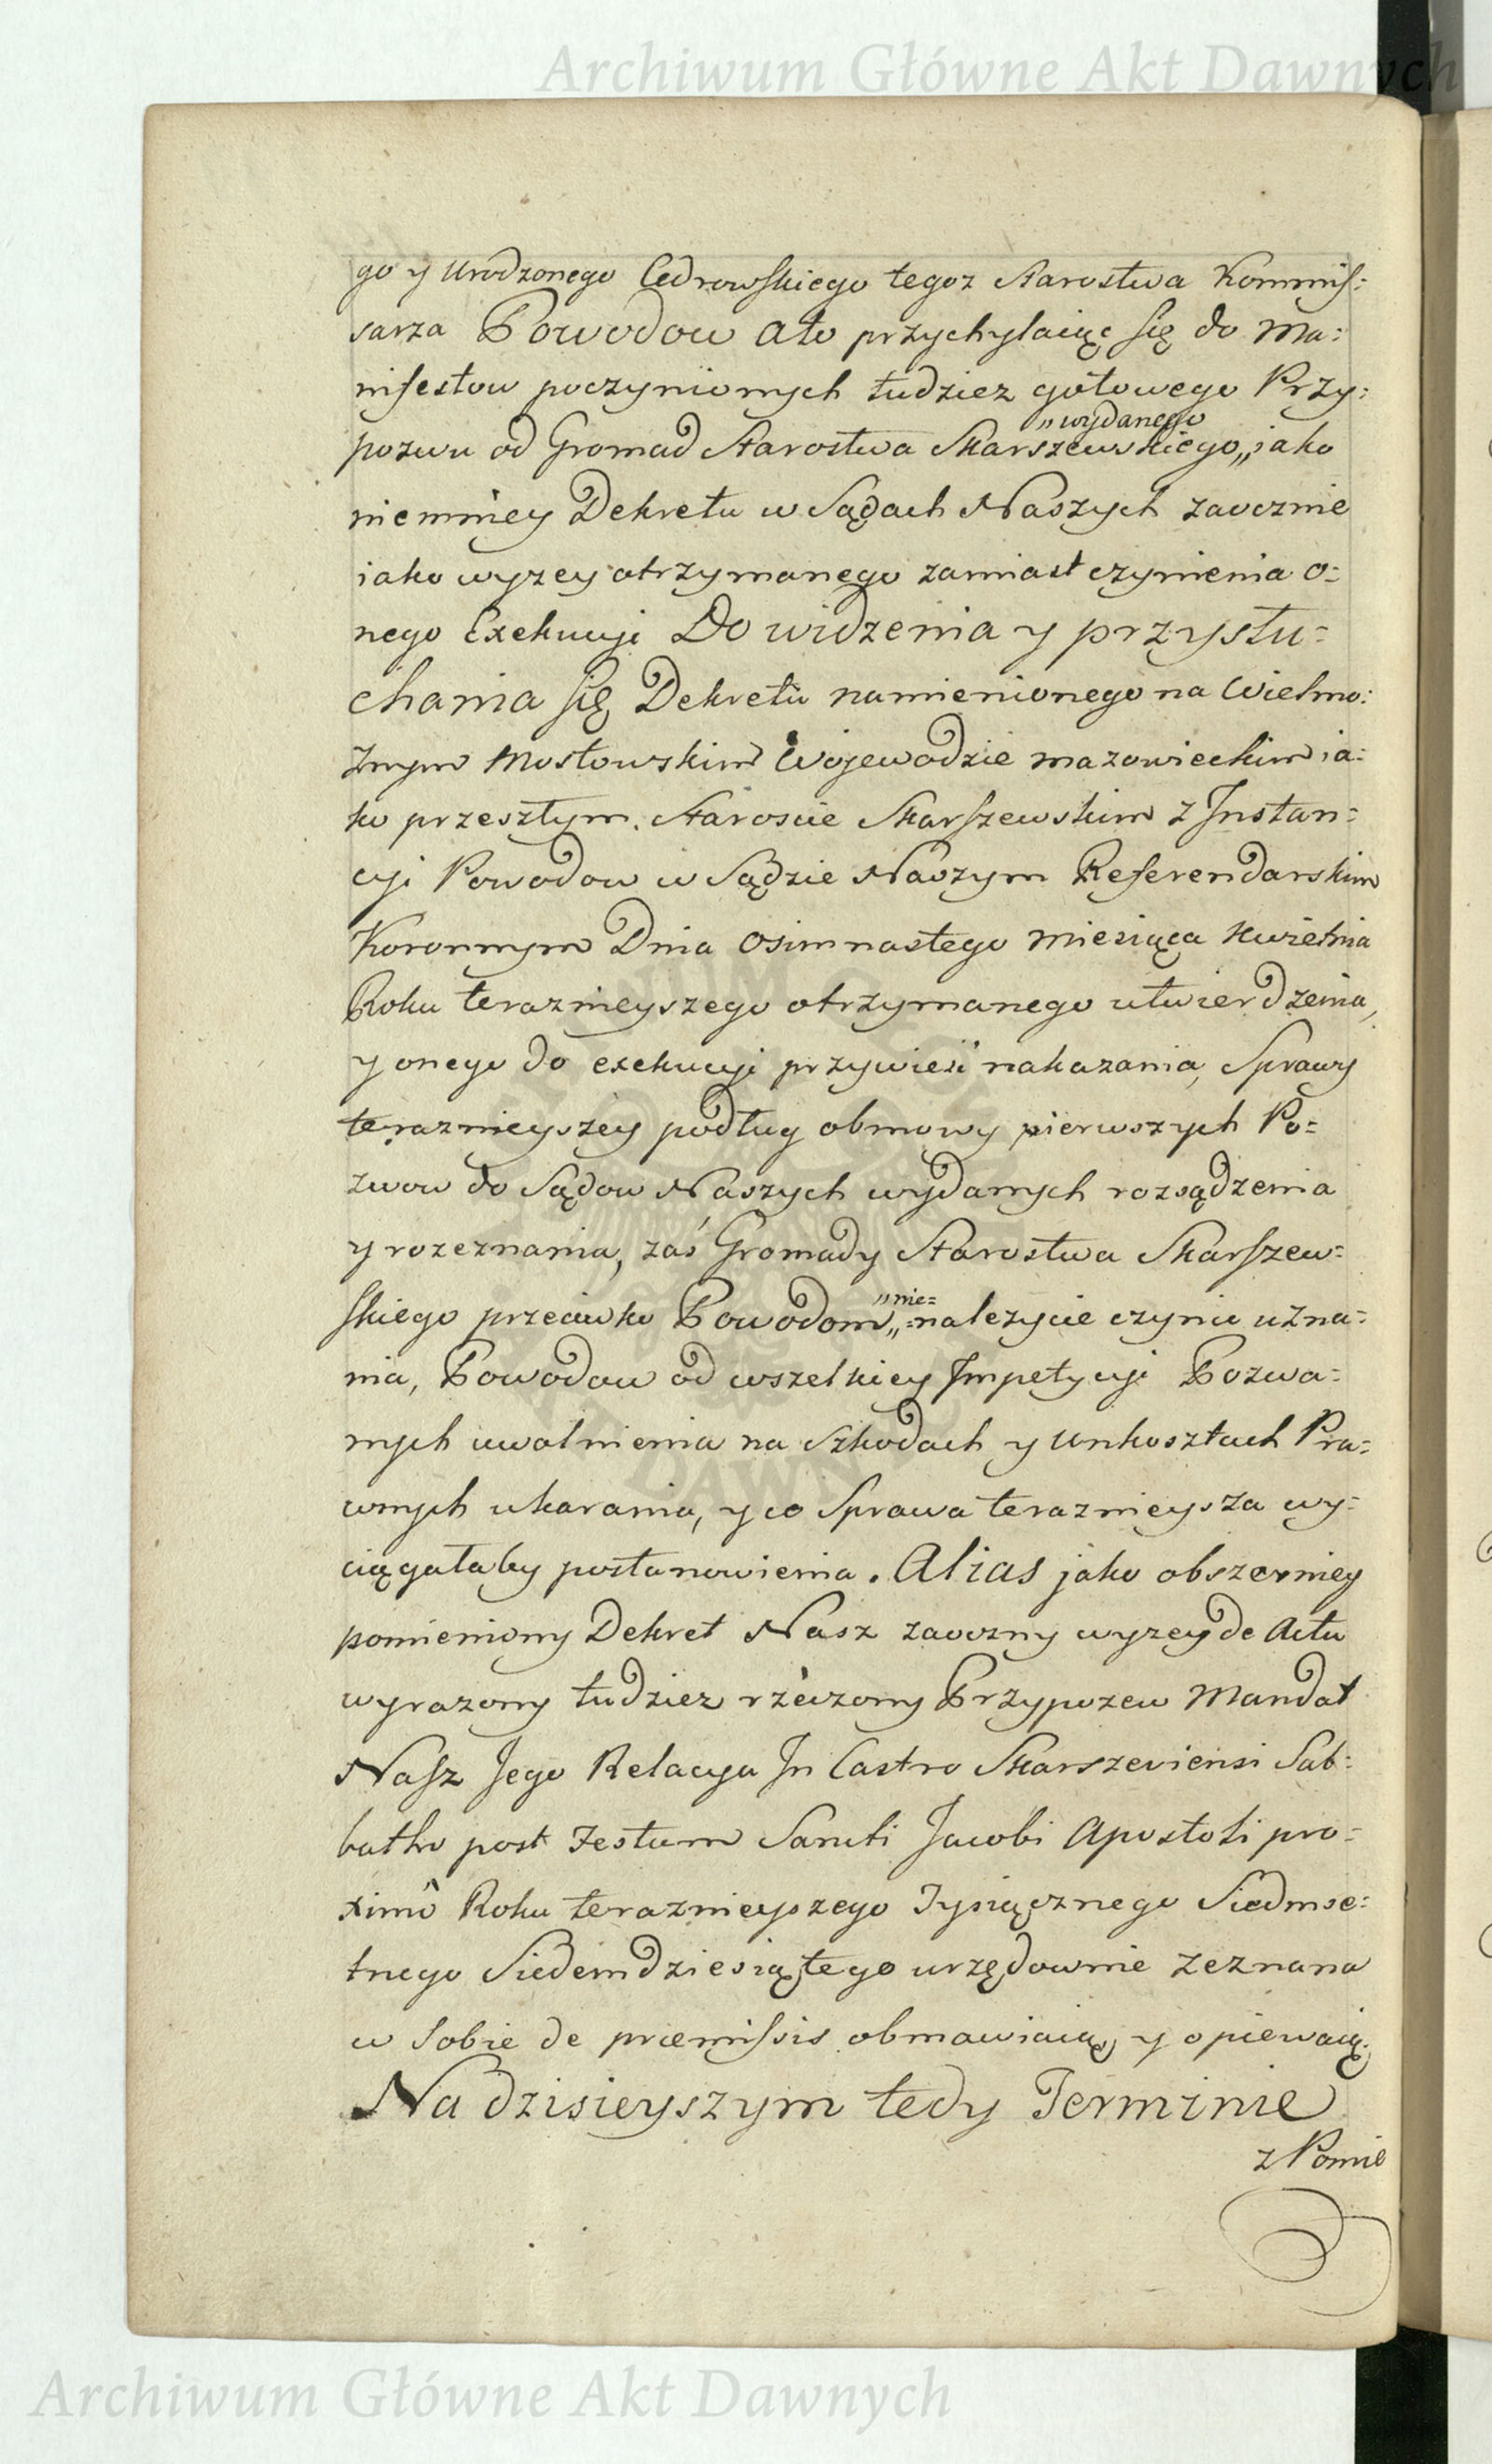 Archiwum Główne Akt Dawnych
go y Urodzonego Cedrowskiego tegoz Starostwa Kommis:
sarza Powodow Ato przychylaiąc się do Ma:
nifestow poczynionych tudziez gotowego Przy:
„wydanego
pozwu od Gromad Starostwa Skarszewskiego„ jako
niemniey Dekretu w Sądach Naszych zaocznie
iako wyzey otrzymanego zamiast czynienia o=
nego Exekucyi Do widzenia y przysłu=
chania się Dekretu namienionego na Wielmo:
znym Mostowskim Wojewodzie mazowieckim ia:
ko przeszłym Staroscie Skarszewskim z Instan=
cyi Powodow w Sądzie Naszym Referendarskim
Koronnym Dnia Osimnastego Miesiąca Kwietnia
Roku teraznieyszego otrzymanego utwierdzenia,
y onego do exekucyi przywieść nakazania, Sprawy
teraznieyszey podług obmowy pierwszych Po=
zwow do Sądow Naszych wydanych rozsądzenia
y rozeznania, zaś Gromady Starostwa Skarszew=
skiego przeciwko Powodom„ =nalezycie czynić uzna=
„nie=
nia, Powodow od wszelkiey Impetycyi Pozwa=
nych uwolnienia na Szkodach y Unkosztach Pra=
wnych ukarania, y co Sprawa teraznieysza wy=
ciągałaby postanowienia. Alias jako obszerniey
pomieniony Dekret Nasz zaoczny wyzey de Actu
wyrazony tudziez rzeczony Przypozew Mandat
Nasz Jego Relacya In Castro Skarszeviensi Sab=
batho post Festum Sancti Jacobi Apostoli pro=
ximô Roku teraznieyszego Tysiącznego Siedmse=
tnego Siedemdziesiątego urzędownie zeznana
w Sobie de præmissis obmawiaią y opiewaią.
Na dzisieyszym tedy Terminie
z Pomie
Archiwum Główne Akt Dawnych